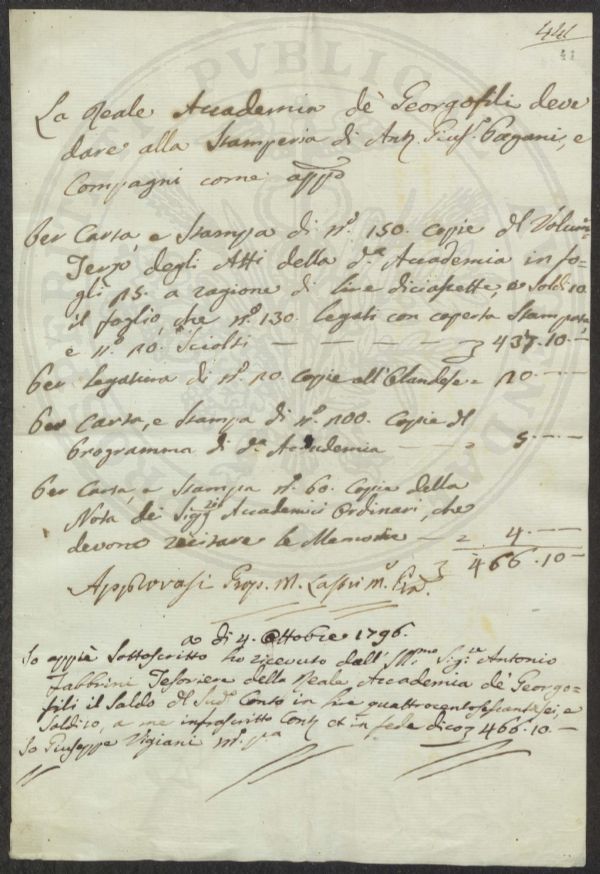 444
41
La Reale Accademia de' Georgofili deve
dare alla Stamperia di Ant. Gius.e Pagani, e
Compagni come app.o
Per Carta, e Stampa di n.o 150. Copie del Volume
Terzo degli Atti della d.a Accademia in fo-
gli 25. a ragione di lire diciassette, e Soldi 10
il foglio, che n.o 130. legati con coperta Stampata
e n.o 20. Sciolti — — — — 437.10.—
Per legatura di n.o 20. Copie all'Olandese = 20.—
Per Carta, e Stampa di n.o 200. Copie del
Programma di d.a Accademia — — 5.—
Per Carta, e Stampa n.o 60. Copie della
Nota dei Sigg.ri Accademici Ordinari, che
devono recitare le Memorie — 4.—
466.10—
Approvasi Prop. M. Lastri
a di 4. Ottobre 1796.
Io appiè Sottoscritto ho ricevuto dall'Ill.mo Sig.re Antonio
Fabbrini Tesoriere della Reale Accademia de' Georgo-
fili il Saldo del Sud.o Conto in lire quattrocentosessantasei, e
Soldi 10, a me infrascritto Cont. et in fede dico 466.10—
Io Giuseppe Vigiani m.o p.a